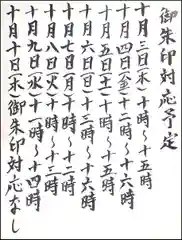 御朱印対応予定
十月三日(木)十時〜十五時
十月四日(金)十二時〜十六時
十月五日(土)十時〜十五時
十月六日(日)十三時〜十六時
十月七日(月)十時〜十二時
十月八日(火)十時〜十三時
十月九日(水)十一時〜十四時
十月十日(木)御朱印対応なし